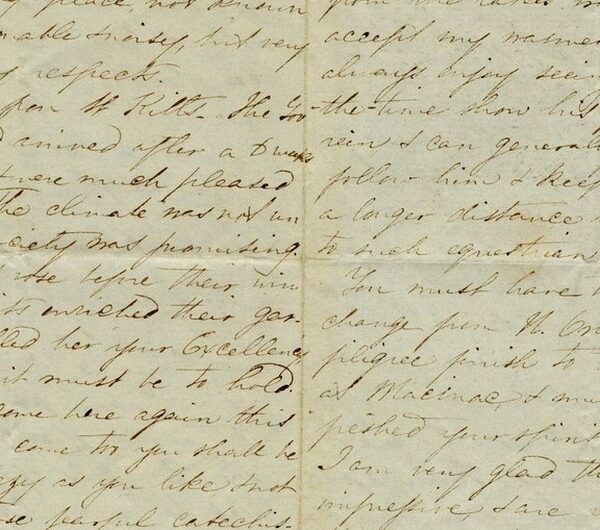 peace, not known
able & noisy, but very
respect.
upon St Kitts. The Gov
arrived after a 6 weeks
were much pleased
The climate was not un
ciety was promising.
rose before their win
enriched their gar-
led her your Excellency
it must be to hold.
come here again this
come to you shall be
as you like & not
se
accept my warmes
always enjoy seein
the time show his
rein & can generall
follow him & keep
a longer distance
to such equestrian
You must have
change from N.
finish to
as Macinac, & mu
your spirits
I am very glad th
impressive & are